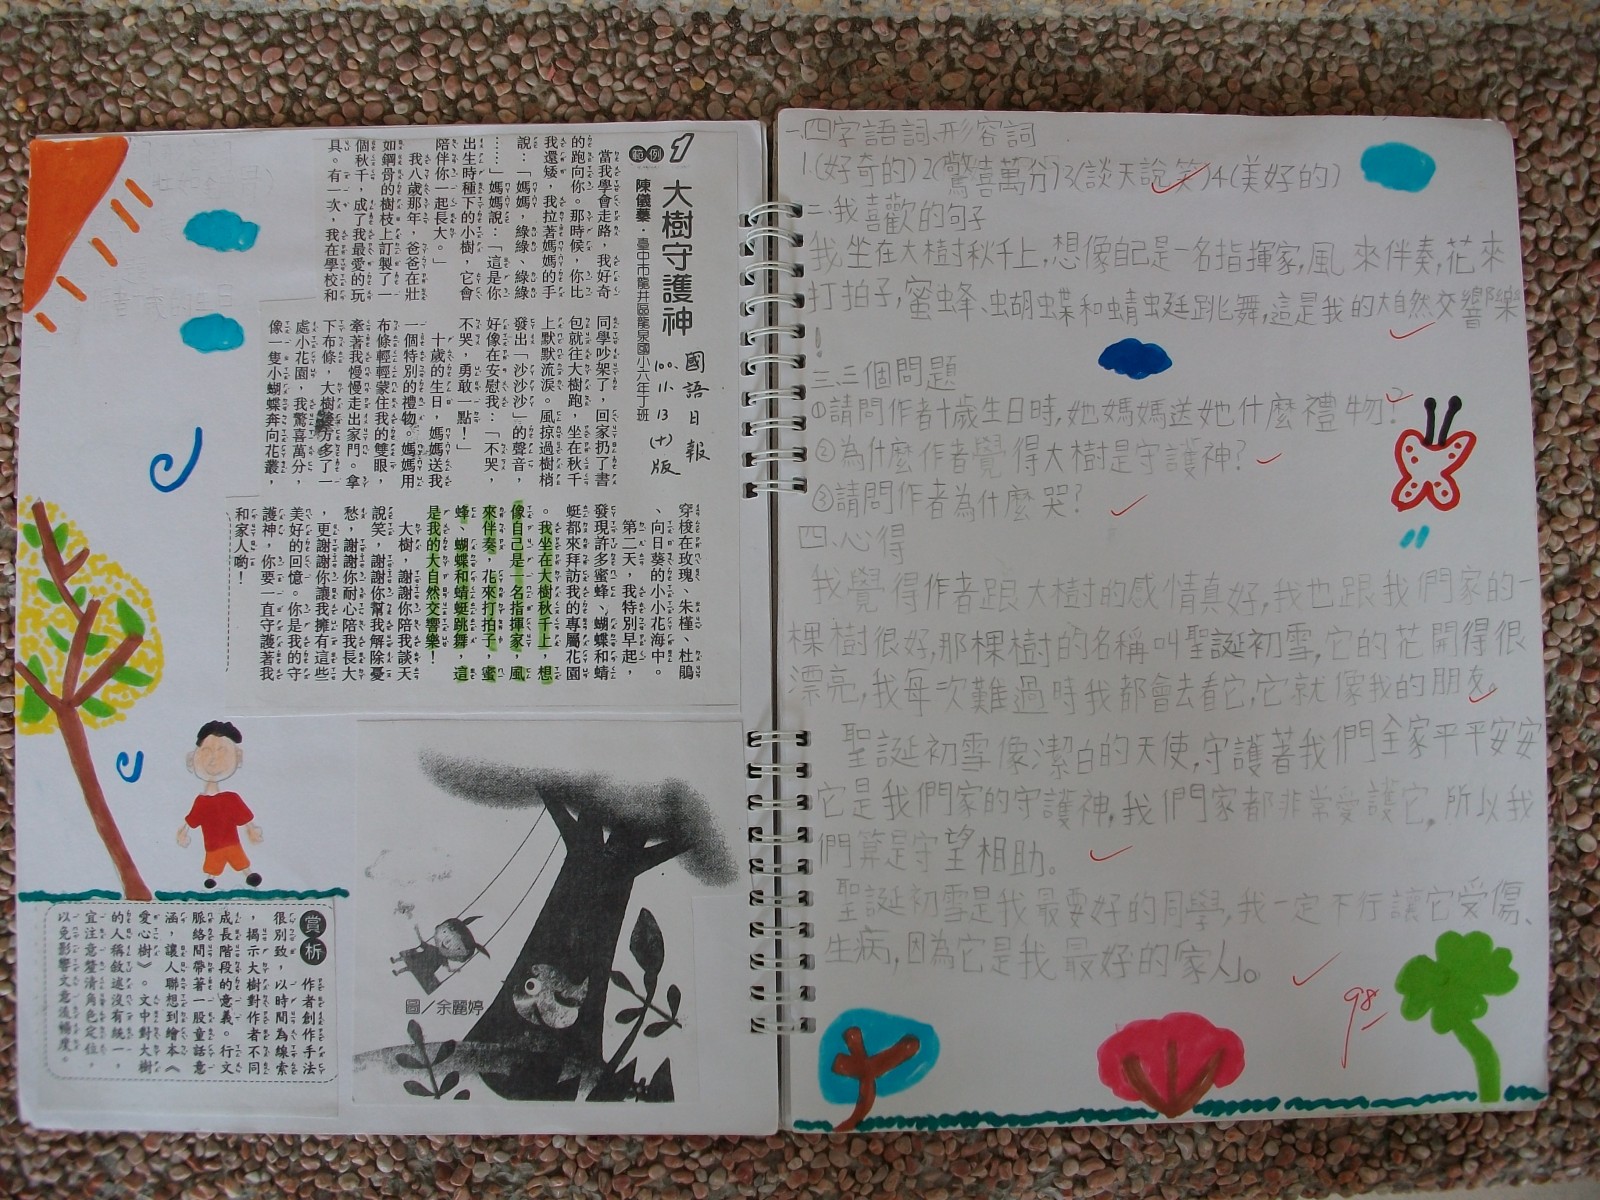 1
範例
大樹守護神
陳儀蓁・臺中市龍井區龍泉國小六年丁班
國語日報
100.11.13(十)版
當我學會走路，我好奇
的跑向你。那時候，你比
我還矮，我拉著媽媽的手
說：「媽媽，綠綠、綠綠
……」媽媽說：「這是你
出生時種下的小樹，它會
陪伴你一起長大。」
我八歲那年，爸爸在壯
如鋼骨的樹枝上訂製了一
個秋千，成了我最愛的玩
具。有一次，我在學校和
同學吵架了，回家扔了書
包就往大樹跑，坐在秋千
上默默流淚。風掠過樹梢
發出「沙沙沙」的聲音，
好像在安慰我：「不哭，
不哭，勇敢一點！」
十歲的生日，媽媽送我
一個特別的禮物。媽媽用
布條輕輕蒙住我的雙眼，
牽著我慢慢走出家門。拿
下布條，大樹後方多了一
處小花園，我驚喜萬分，
像一隻小蝴蝶奔向花叢，
穿梭在玫瑰、朱槿、杜鵑
、向日葵的小小花海中。
第二天，我特別早起，
發現許多蜜蜂、蝴蝶和蜻
蜓都來拜訪我的專屬花園
。我坐在大樹秋千上，想
像自己是一名指揮家，風
來伴奏，花來打拍子，蜜
蜂、蝴蝶和蜻蜓跳舞，這
是我的大自然交響樂！
大樹，謝謝你陪我談天
說笑，謝謝你幫我解除憂
愁，謝謝你耐心陪我長大
，更謝謝你讓我擁有這些
美好的回憶。你是我的守
護神，你要一直守護著我
和家人喲！
圖／余麗婷
賞析
作者創作手法
很別致，以時間為線索
，揭示大樹對作者不同
成長階段的意義。行文
脈絡間帶著一股童話意
涵，讓人聯想到繪本《
愛心樹》。文中對大樹
的人稱敘述沒有統一，
宜注意釐清角色定位，
以免影響文意流暢度。
一、四字語詞、形容詞
1.(好奇的)2(驚喜萬分)3(談天說笑)4(美好的)
二、我喜歡的句子
我坐在大樹秋千上，想像自己是一名指揮家，風來伴奏，花來
打拍子，蜜蜂、蝴蝶和蜻蜓跳舞，這是我的大自然交響樂
！
三、三個問題
①請問作者十歲生日時，她媽媽送她什麼禮物？
②為什麼作者覺得大樹是守護神？
③請問作者為什麼哭？
四、心得
我覺得作者跟大樹的感情真好，我也跟我們家的一
棵樹很好，那棵樹的名稱叫聖誕初雪，它的花開得很
漂亮，我每次難過時我都會去看它，它就像我的朋友。
聖誕初雪像潔白的天使，守護著我們全家平平安安
它是我們家的守護神，我們家都非常愛護它，所以我
們算是守望相助。
聖誕初雪是我最要好的同學，我一定不行讓它受傷、
生病，因為它是我最好的家人。
98